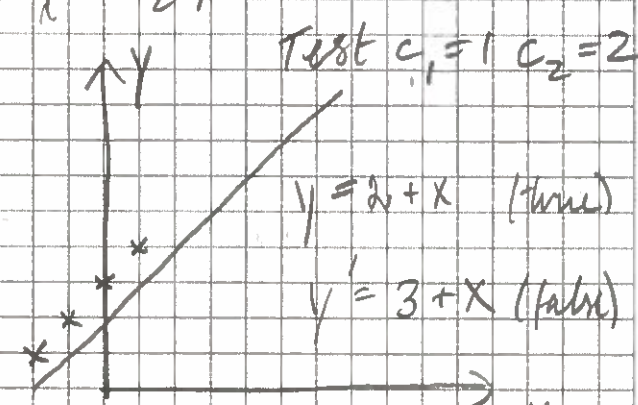 Test c₁ = 1 c₂ = 2
Y
y = 2 + x (true)
y' = 3 + x (false)